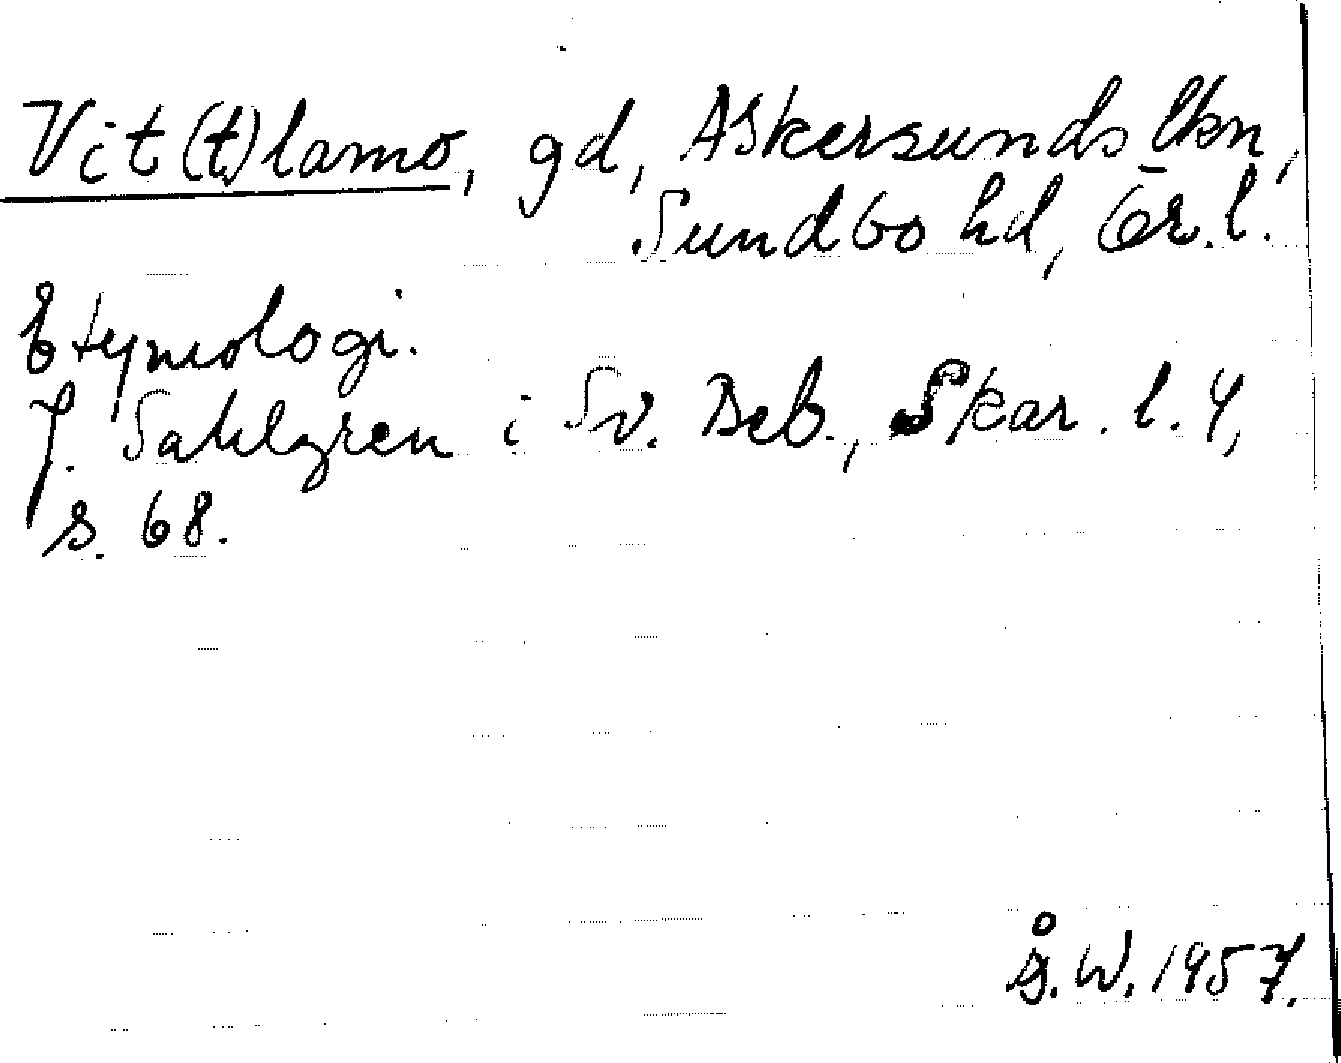 Vit(t)lamo, gd, Askersunds lkn,
Sundbo hd, Ör. l.
Etymologi.
J. Sahlgren i Sv. Beb., Skar. l. 4,
s. 68.
Å. W. 1957.